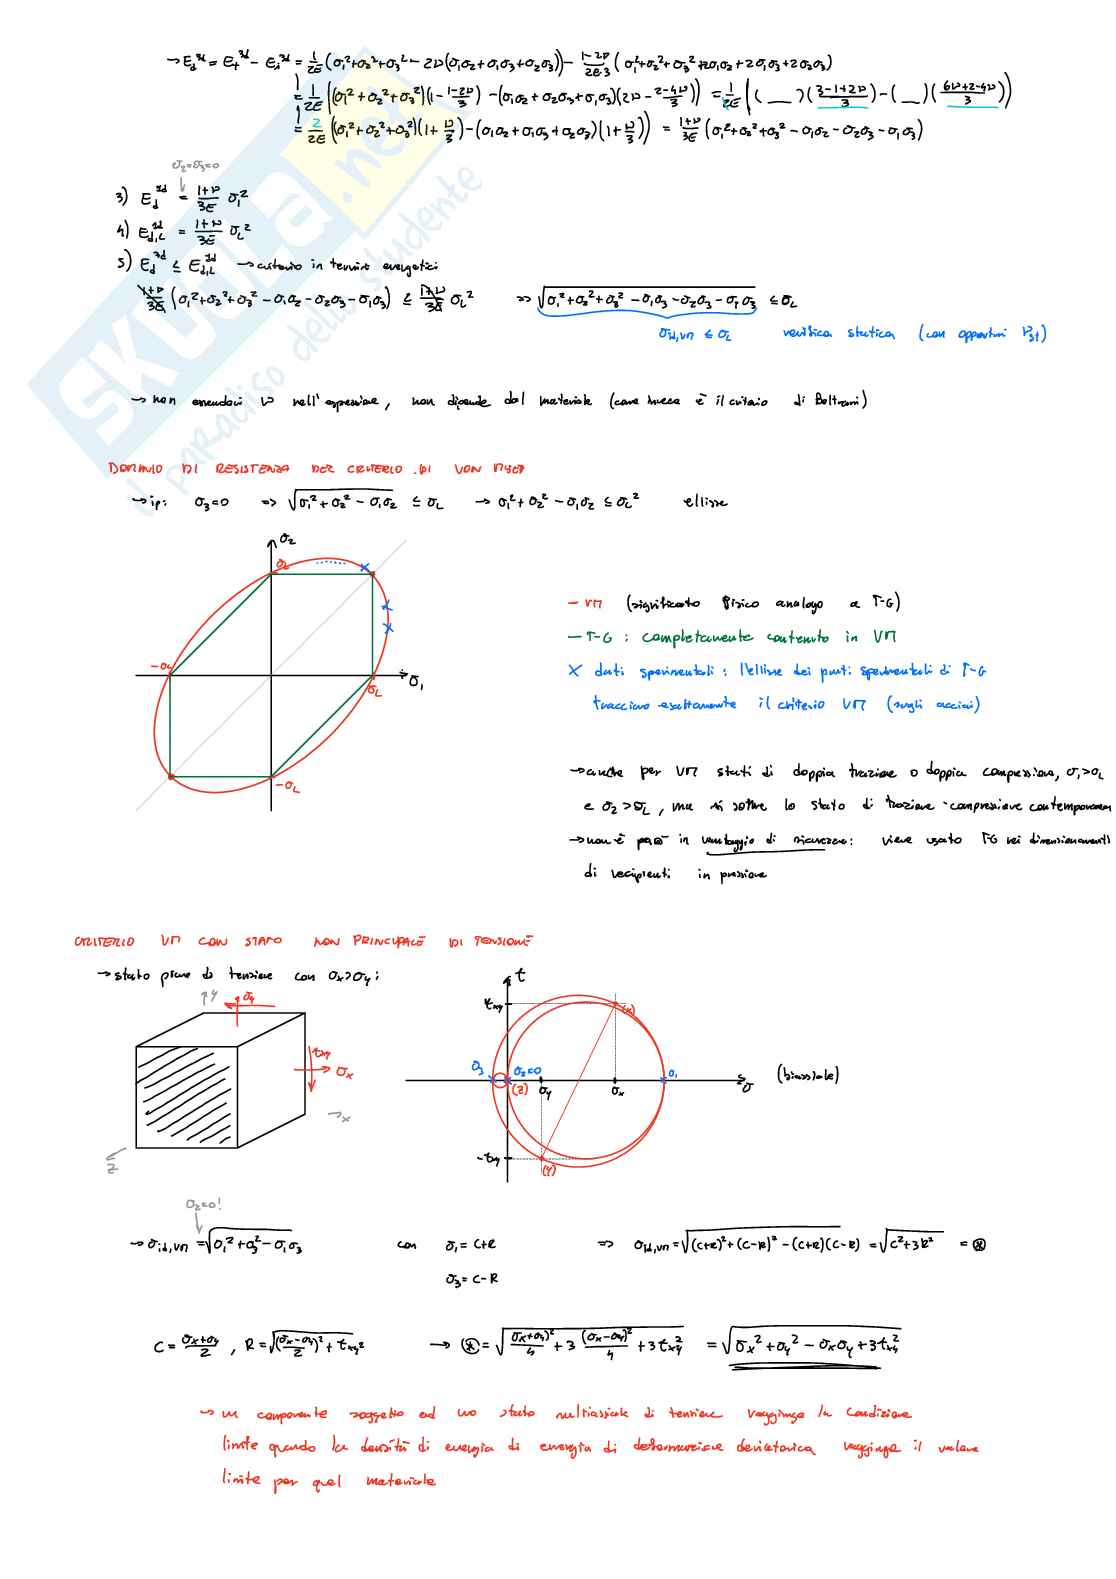 → E_d^3d = E_t^3d - E_v^3d = 1/2E (σ1²+σ2²+σ3² - 2ν(σ1σ2+σ1σ3+σ2σ3)) - (1-2ν)/(2E·3) (σ1²+σ2²+σ3²+2σ1σ2+2σ1σ3+2σ2σ3)
= 1/2E ((σ1²+σ2²+σ3²)(1-(1-2ν)/3) - (σ1σ2+σ2σ3+σ1σ3)(2ν-(2-4ν)/3)) = 1/2E (( __ )((3-1+2ν)/3) - ( __ )((6ν+2-4ν)/3))
= 2/2E ((σ1²+σ2²+σ3²)(1+ν/3) - (σ1σ2+σ1σ3+σ2σ3)(1+ν/3)) = (1+ν)/3E (σ1²+σ2²+σ3² - σ1σ2 - σ2σ3 - σ1σ3)
σ2=σ3=0
3) E_d^1d = (1+ν)/3E σ1²
4) E_d,L^1d = (1+ν)/3E σL²
5) E_d^3d ≤ E_d,L^1d → criterio in termini energetici
(1+ν)/3E (σ1²+σ2²+σ3² - σ1σ2 - σ2σ3 - σ1σ3) ≤ (1+ν)/3E σL² => √(σ1²+σ2²+σ3² - σ1σ3 - σ2σ3 - σ1σ3) ≤ σL
σid,VM ≤ σL verifica statica (con opportuni νst)
→ non essendoci ν nell'espressione, non dipende dal materiale (come invece è il criterio di Beltrami)
DOMINIO DI RESISTENZA DEL CRITERIO DI VON MISES
→ ip: σ3=0 => √(σ1²+σ2²-σ1σ2) ≤ σL → σ1²+σ2²-σ1σ2 ≤ σL² ellisse
σ2
σL
-σL
σ1
σL
-σL
- VM (significato fisico analogo a T-G)
- T-G : completamente contenuto in VM
× dati sperimentali : l'ellisse dei punti sperimentali di T-G
tracciano esattamente il criterio VM (sugli acciai)
→ anche per VM stati di doppia trazione o doppia compressione, σ1>σL
e σ2>σL, ma si soffre lo stato di trazione-compressione contemporanea
→ non è però in vantaggio di sicurezza: viene usato T-G nei dimensionamenti
di recipienti in pressione
CRITERIO VM CON STATO NON PRINCIPALE DI TENSIONE
→ stato piano di tensione con σx>σy:
y
σy
τxy
σx
x
z
τ
τxy
(x)
σ3
σ2=0
σ1
(z)
σy
σx
σ
(biassiale)
-τxy
(y)
σ2=0!
→ σid,VM = √(σ1²+σ3²-σ1σ3) con σ1 = C+R => σid,VM = √((C+R)²+(C-R)²-(C+R)(C-R)) = √(C²+3R²) = ⊛
σ3 = C-R
C = (σx+σy)/2 , R = √(((σx-σy)/2)² + τxy²) → ⊛ = √((σx+σy)²/4 + 3 (σx-σy)²/4 + 3τxy²) = √(σx²+σy²-σxσy+3τxy²)
→ un componente soggetto ad uno stato multiassiale di tensione raggiunge la condizione
limite quando la densità di energia di energia di deformazione deviatorica raggiunge il valore
limite per quel materiale
SKUOLA.net
il paradiso dello studente